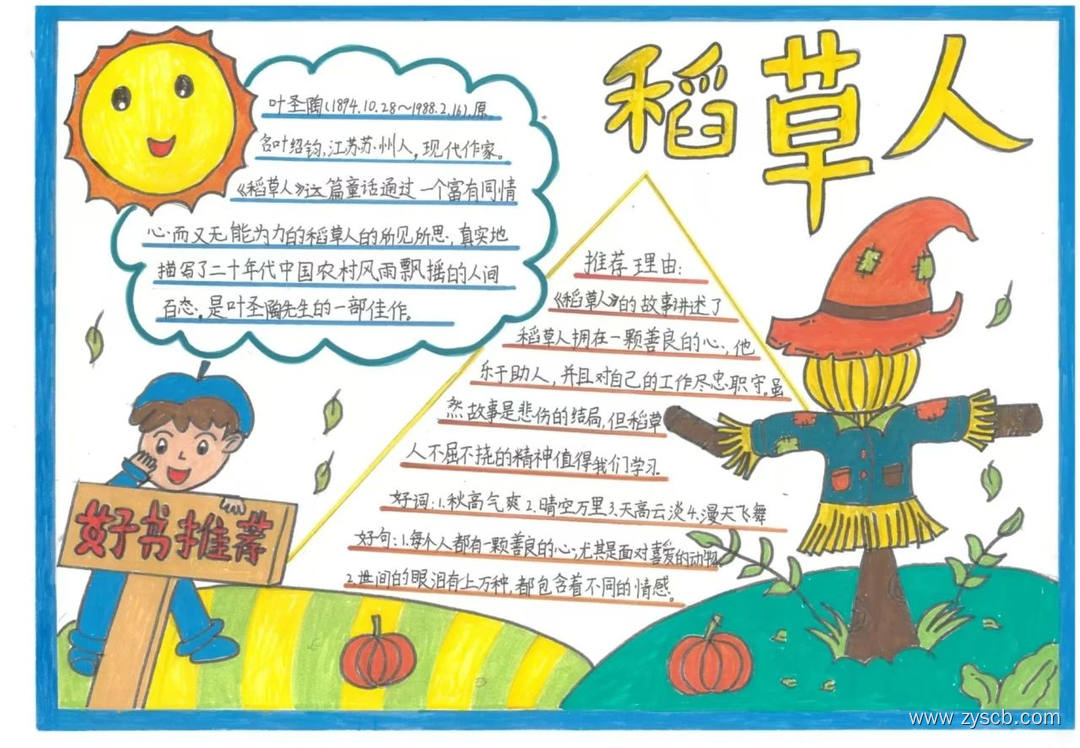 稻草人
叶圣陶(1894.10.28~1988.2.16),原
名叶绍钧,江苏苏州人,现代作家。
《稻草人》这篇童话通过一个富有同情
心而又无能为力的稻草人的所见所思,真实地
描写了二十年代中国农村风雨飘摇的人间
百态。是叶圣陶先生的一部佳作。
推荐理由:
《稻草人》的故事讲述了
稻草人拥在一颗善良的心,他
乐于助人,并且对自己的工作尽忠职守。虽
然故事是悲伤的结局,但稻草
人不屈不挠的精神值得我们学习.
好词:1.秋高气爽2.晴空万里3.天高云淡4.漫天飞舞
好句:1.每个人都有一颗善良的心;尤其是面对喜爱的动物
2.世间的眼泪有上万种,都包含着不同的情感。
好书推荐
www.zyscb.com